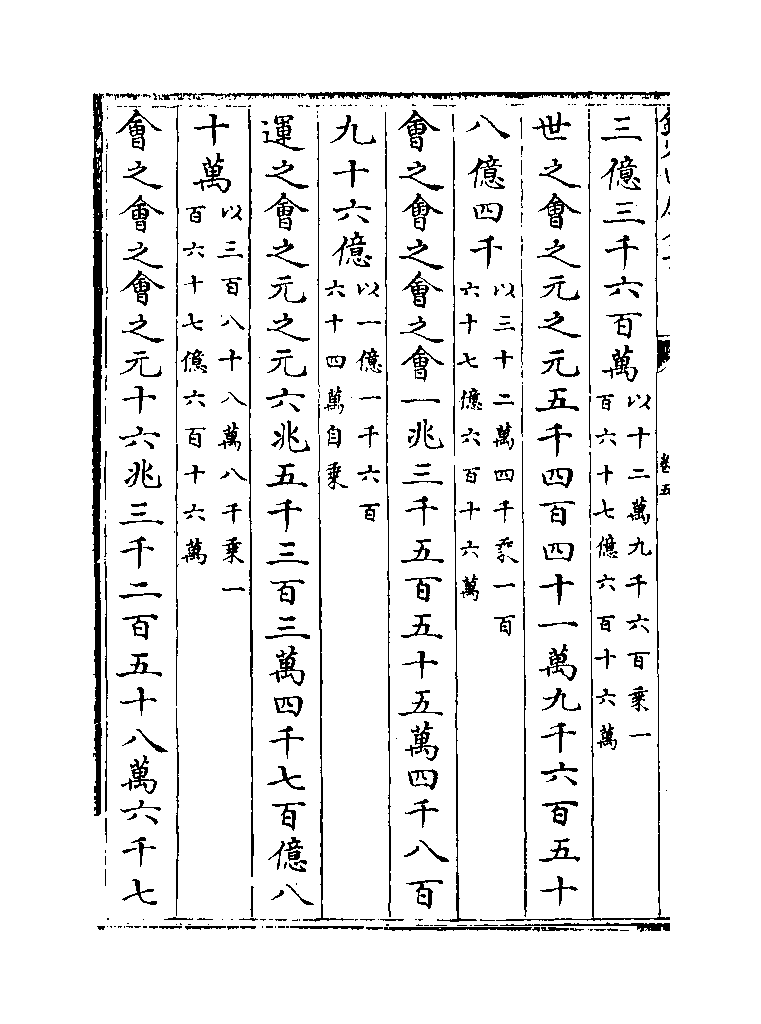 卷五
三億三千六百萬以十二萬九千六百乘一
百六十七億六百十六萬
世之會之元之元五千四百四十一萬九千六百五十
八億四千以三十二萬四千乘一百
六十七億六百十六萬
會之會之會之會一兆三千五百五十五萬四千八百
九十六億以一億一千六百
六十四萬自乘
運之會之元之元六兆五千三百三萬四千七百億八
十萬以三百八十八萬八千乘一
百六十七億六百十六萬
會之會之會之元十六兆三千二百五十八萬六千七